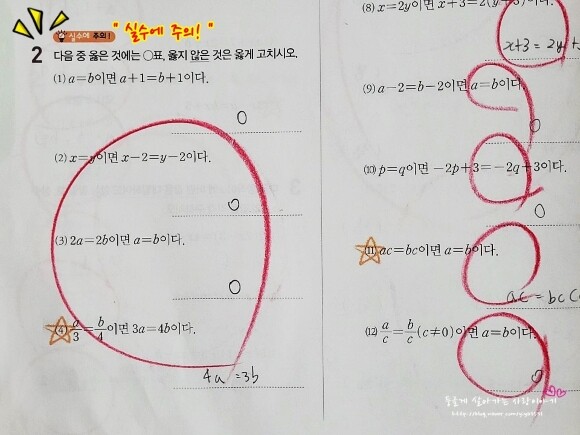 " 실수에 주의! "
실수에 주의!
2 다음 중 옳은 것에는 ○표, 옳지 않은 것은 옳게 고치시오.
(1) a=b이면 a+1=b+1이다.
O
(2) x=y이면 x-2=y-2이다.
O
(3) 2a=2b이면 a=b이다.
O
(4) a/3=b/4이면 3a=4b이다.
4a=3b
(8) x=2y이면 x+3=2(y+3)
x+3=2y+
(9) a-2=b-2이면 a=b이다.
O
(10) p=q이면 -2p+3=-2q+3이다.
O
(11) ac=bc이면 a=b이다.
ac=bc
(12) a/c=b/c(c≠0)이면 a=b이다.
O
둥글게 살아가는 사랑이야기